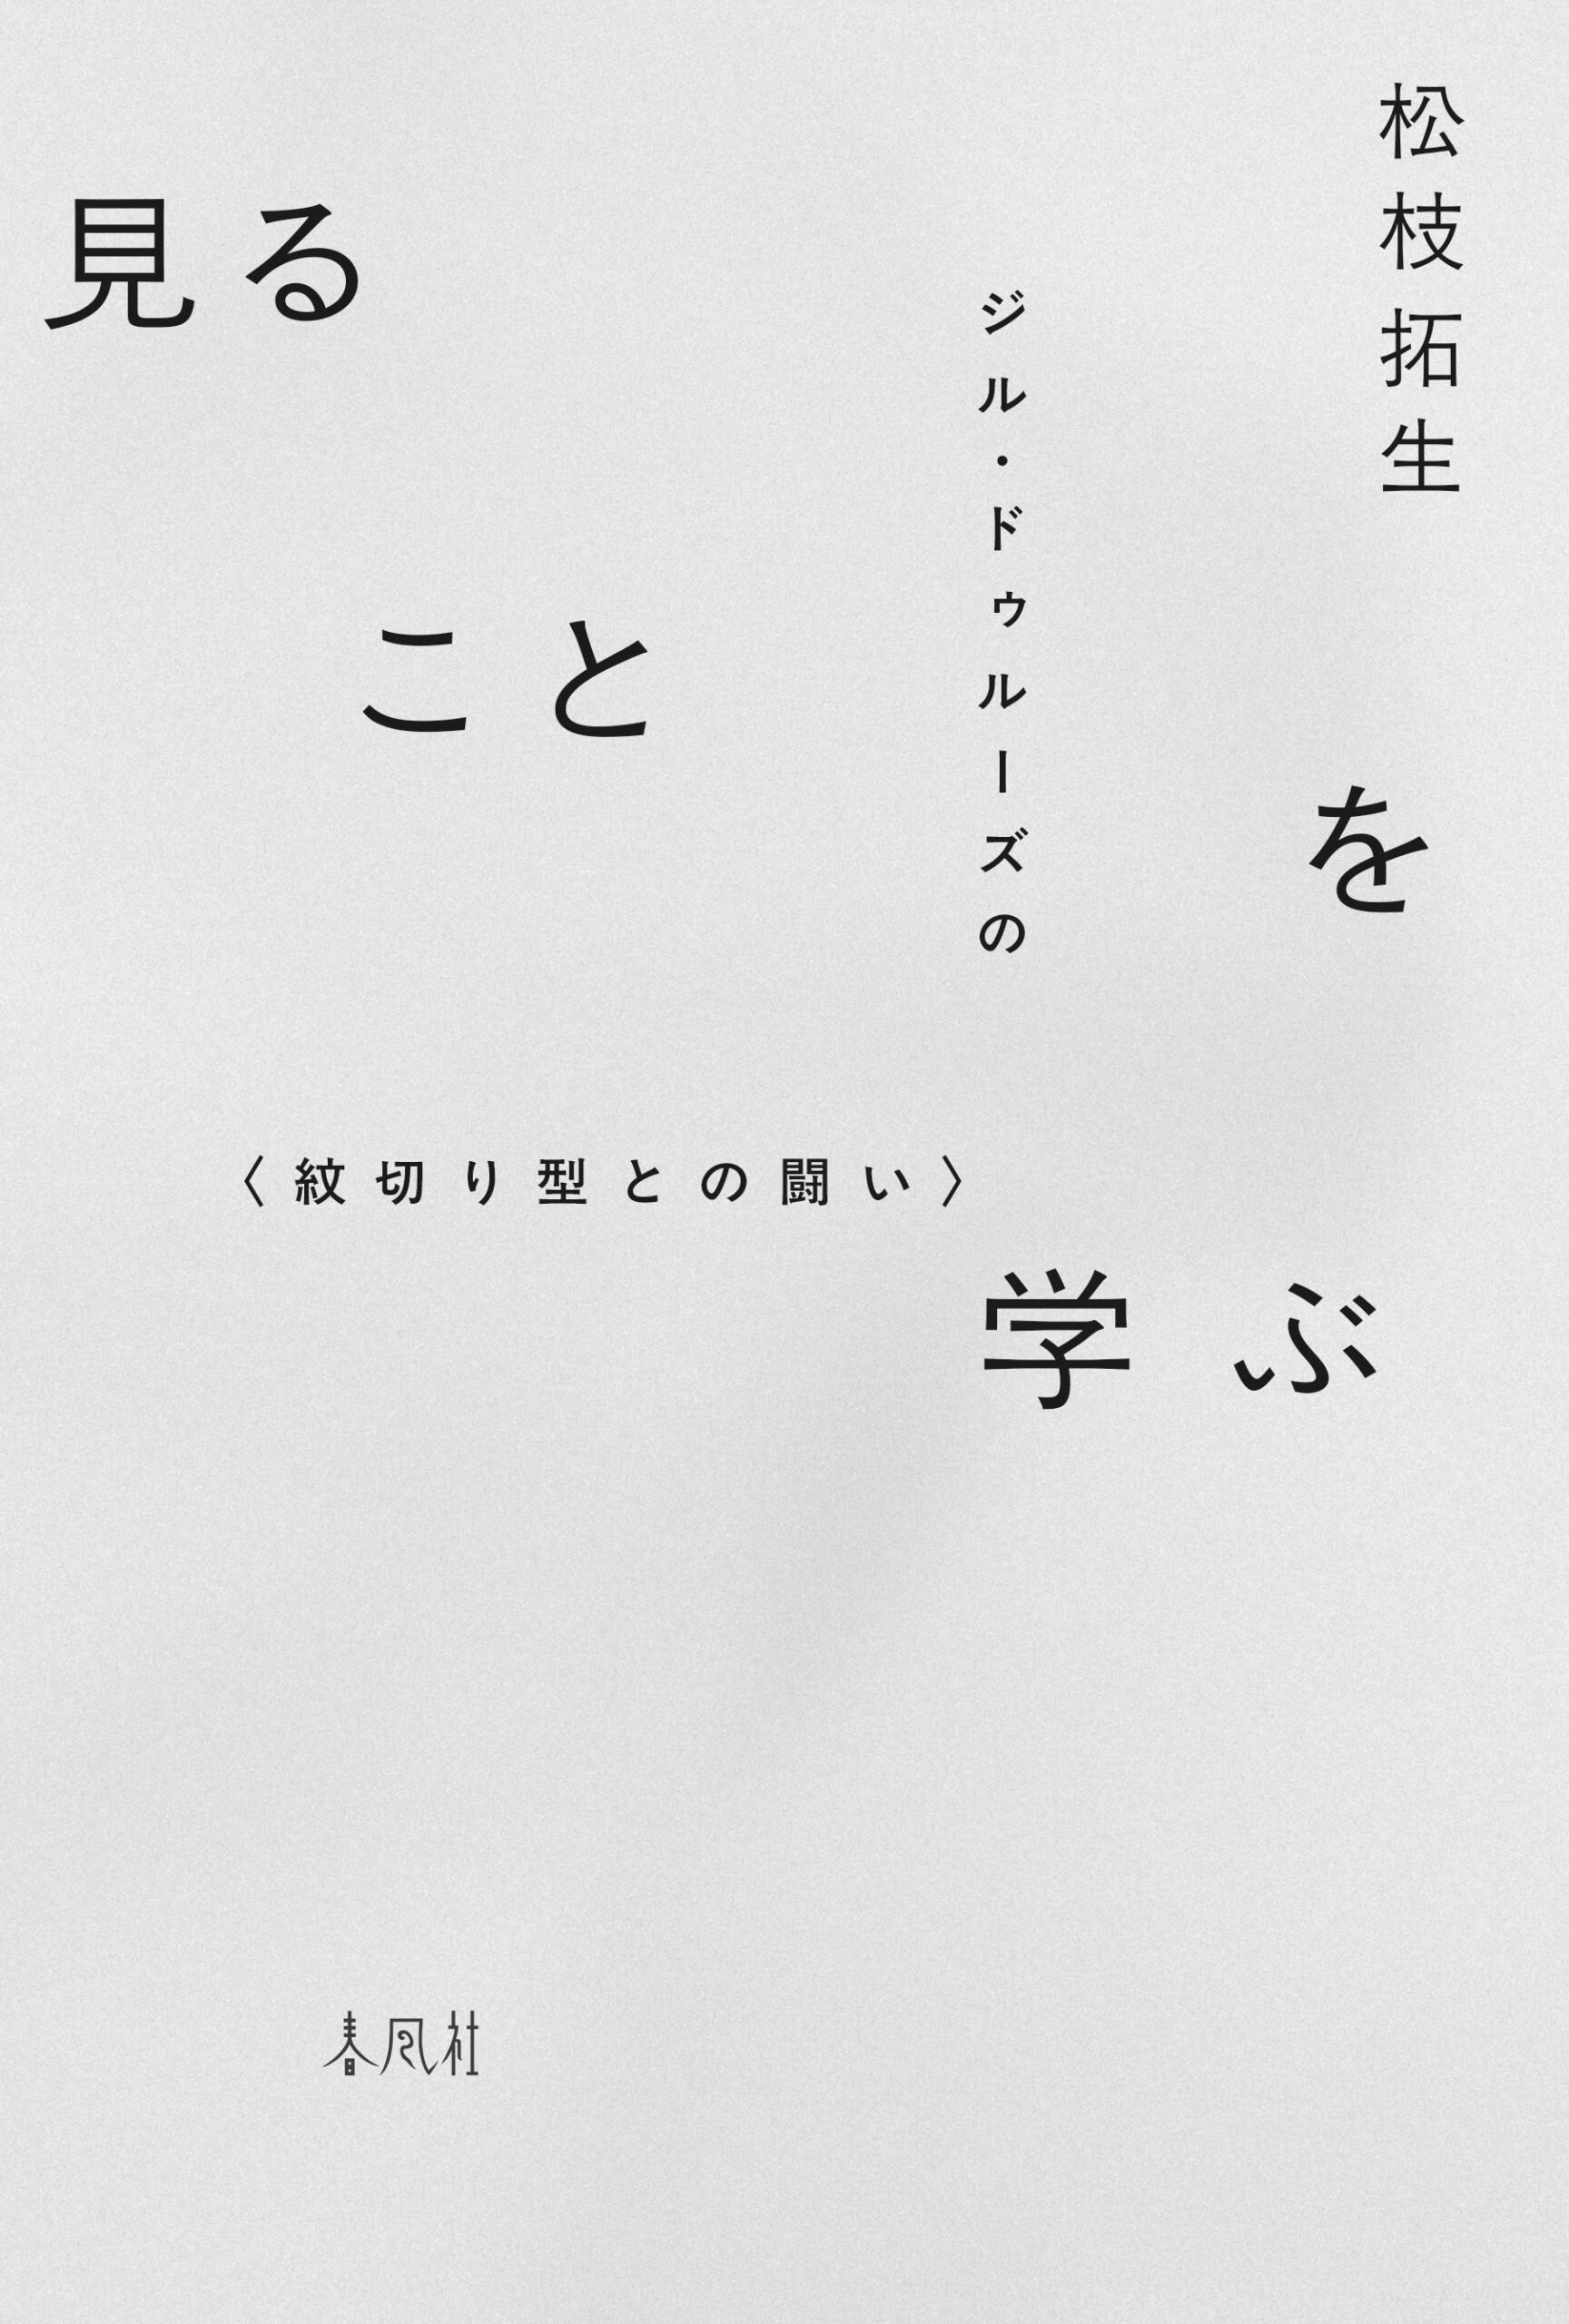 松枝拓生
見る
こと
を
学ぶ
ジル・ドゥルーズの
〈紋切り型との闘い〉
春風社